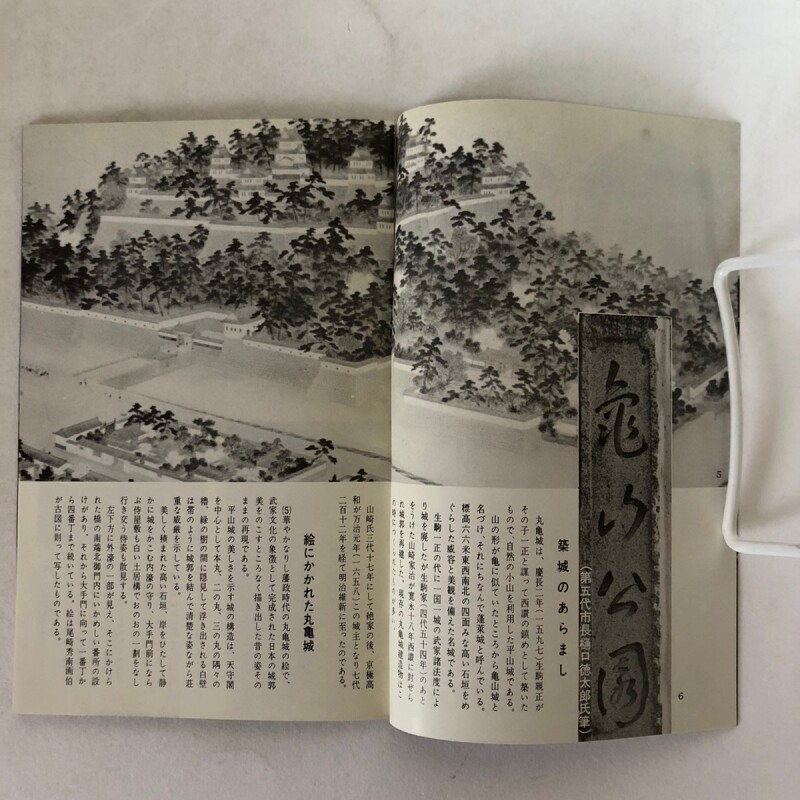 亀山公園
(第五代市長樋口徳太郎氏筆)
5
6
築城のあらまし
丸亀城は、慶長二年(一五九七)生駒親正が
その子一正と謀って西讃の鎮めとして築いた
もので、自然の小山を利用した平山城である。
山の形が亀に似ていたところから亀山城と
名づけ、それにちなんで蓬莱城と呼んでいる。
標高六六米東西南北の四面みな高い石垣をめ
ぐらした威容と美観を備えた名城である。
生駒一正の代に一国一城の武家諸法度によ
り城を廃したが生駒家(四代五十四年)のあと
をうけた山崎家治が寛永十八年西讃に封ぜら
れ城郭を再建した。現存の丸亀城建造物はこ
の時につ
山崎氏三代十七年にして絶家の後、京極高
和が万治元年(一六五八)この城主となり七代
二百十二年を経て明治維新に至ったのである。
絵にかかれた丸亀城
(5)華やかなりし藩政時代の丸亀城の絵で、
武家文化の象徴として完成された日本の城郭
美をのこすところなく描き出した昔の姿その
ままの再現である。
平山城の美しさを示す城の構造は、天守閣
を中心として本丸、二の丸、三の丸の隅々の
櫓、緑の樹の間に隠見して浮き出される白壁
は帯のように城郭を結んで清楚な姿ながら荘
重な威厳を示している。
美しく積まれた高い石垣、岸をひたして静
かに城をかこむ内濠の守り、大手門前になら
ぶ侍屋敷も白い土居構でおのおの一劃をなし
行き交う侍姿も散見する。
左下方に外濠の一部が見え、そこにかけら
れた橋の南端北御門内にいかめしい番所の設
けがあり、それから大手門に向って一番丁か
ら四番丁まで続いている。絵は尾崎秀南画伯
が古図に則って写したものである。